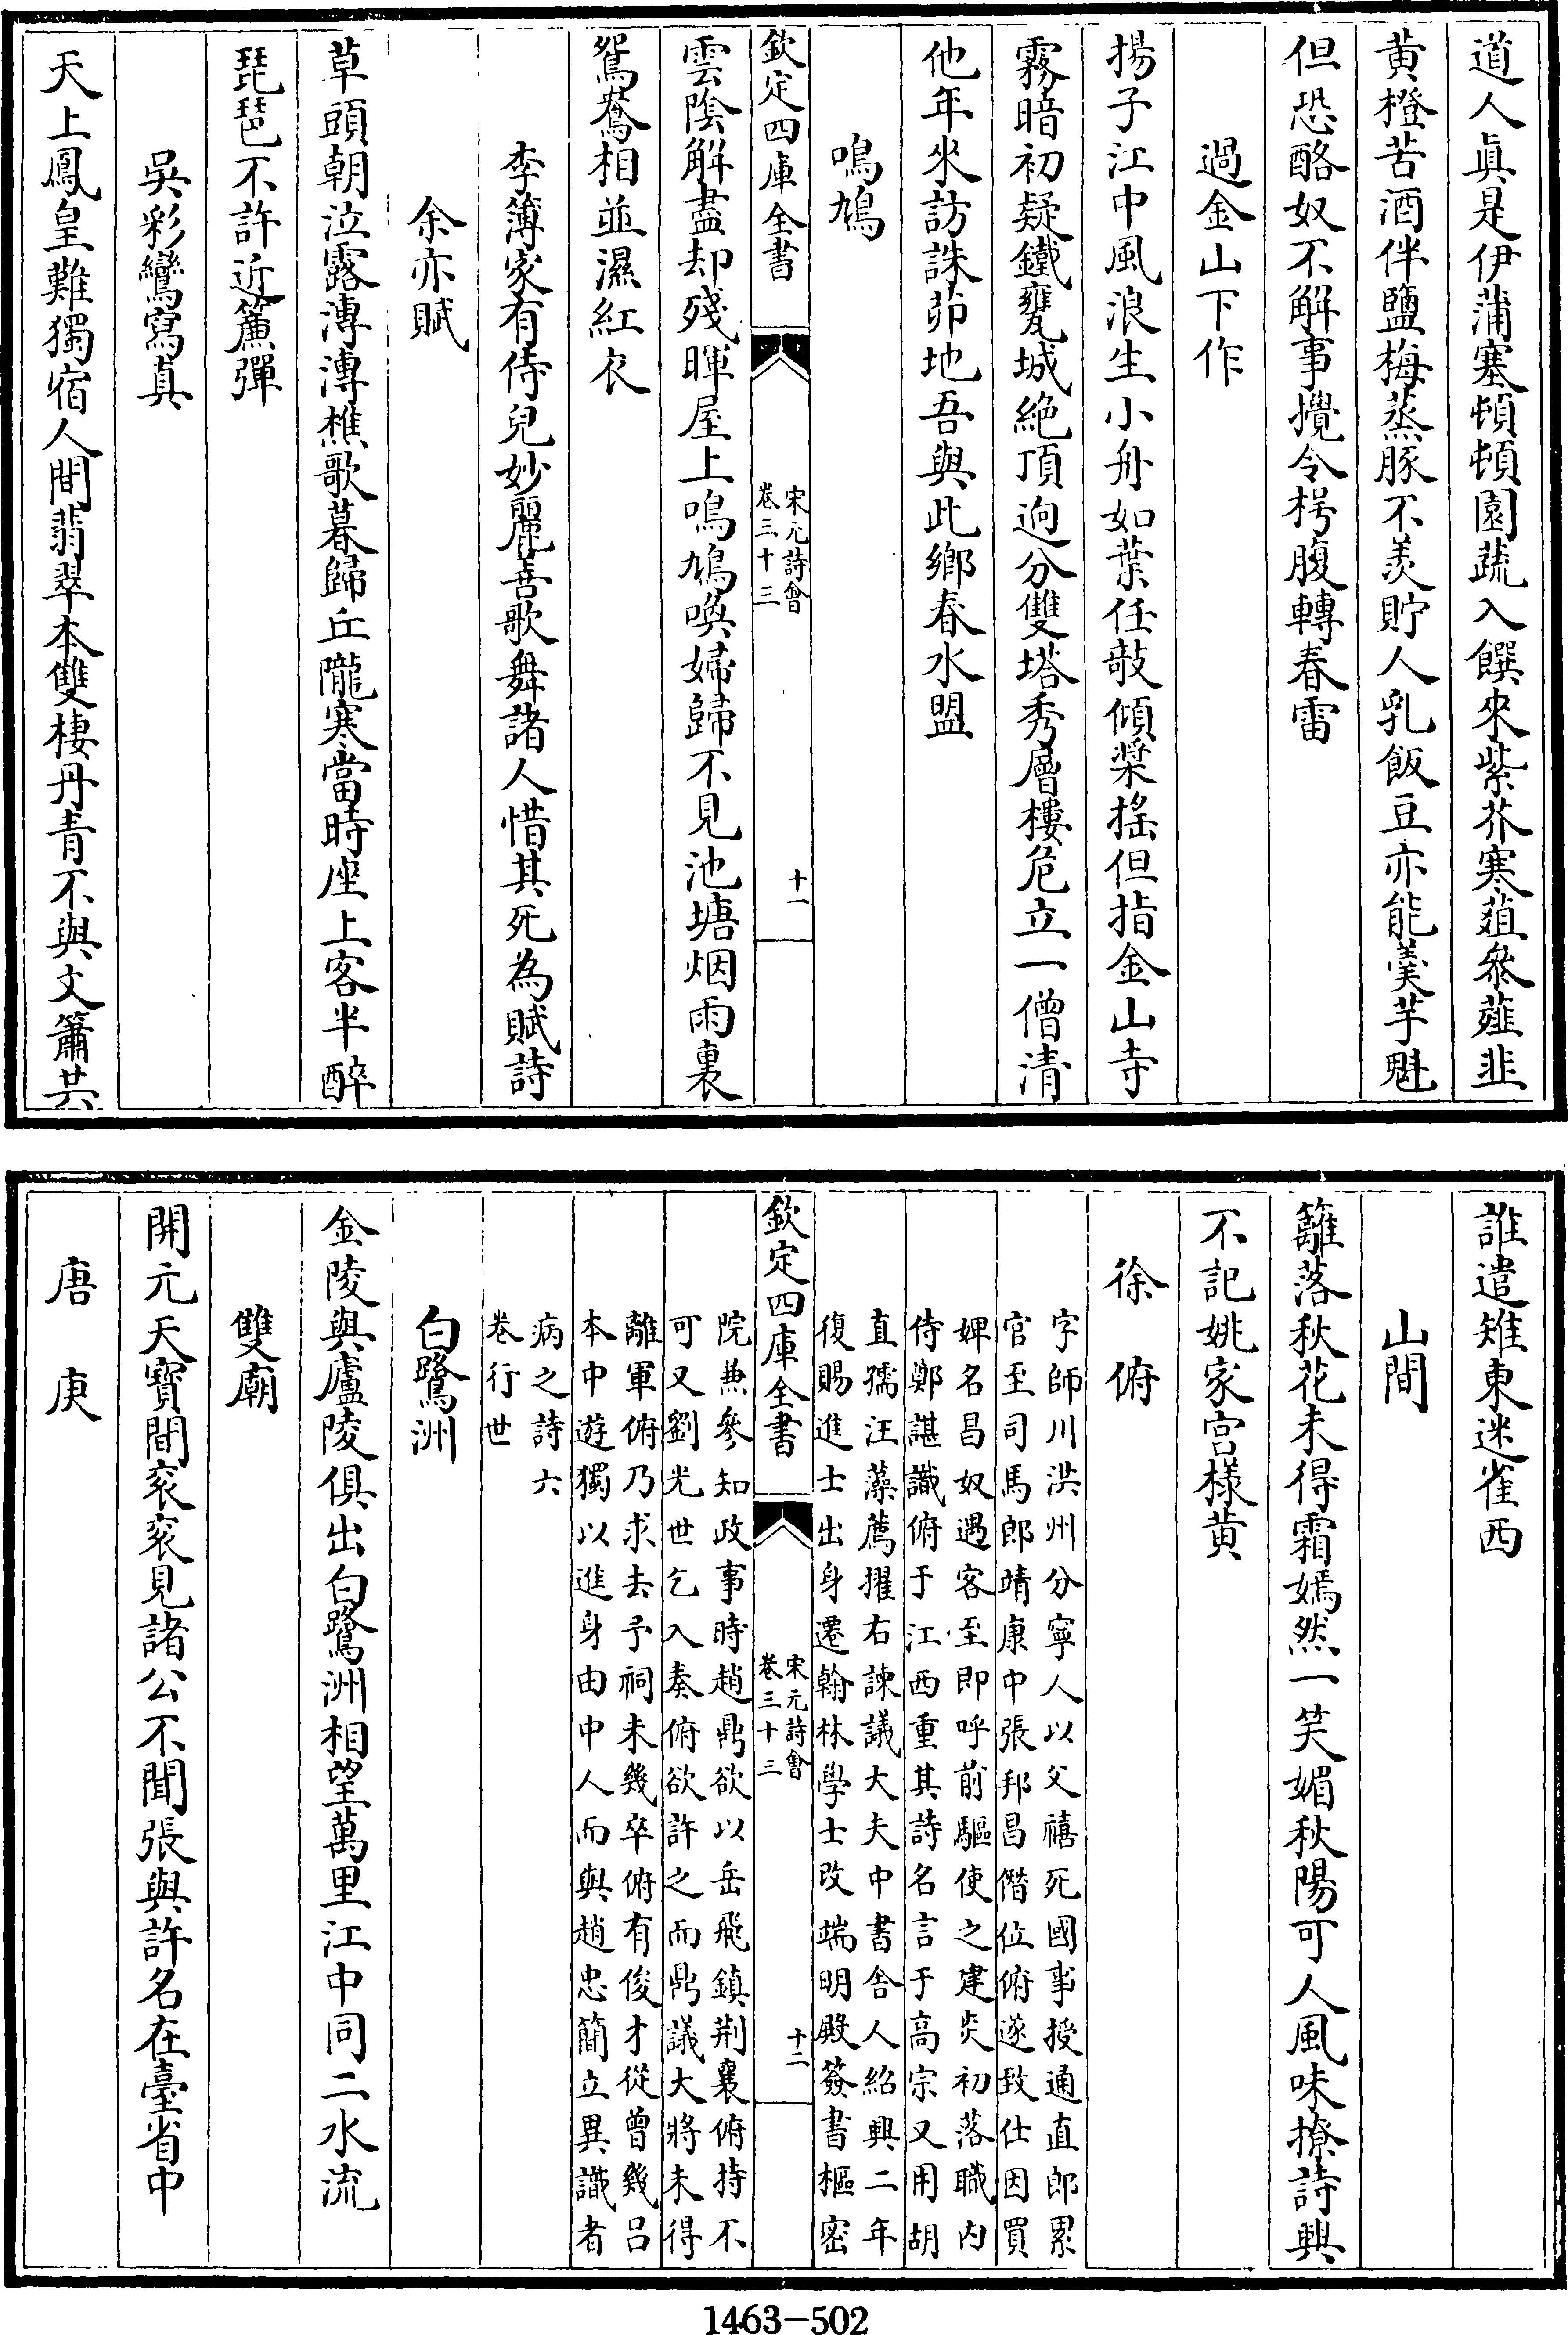 道人真是伊蒲塞頓頓園蔬入饌來紫芥寒菹叅薤韭
黄橙苦酒伴鹽梅蒸豚不羨貯人乳飯豆亦能羮芋魁
但恐酪奴不解事攪令枵腹轉春雷
過金山下作
揚子江中風浪生小舟如葉任敧傾槳揺但指金山寺
霧暗初疑鐵甕城絶頂逈分雙塔秀層樓危立一僧清
他年來訪誅茆地吾與此鄉春水盟
鳴鳩
欽定四庫全書
宋元詩會
卷三十三
十一
雲隂解盡却殘暉屋上鳴鳩喚婦歸不見池塘烟雨裏
鴛鴦相並濕紅衣
李簿家有侍兒妙麗善歌舞諸人惜其死為賦詩
余亦賦
草頭朝泣露漙漙樵歌暮歸丘隴寒當時座上客半醉
琵琶不許近簾彈
吳彩鸞寫真
天上鳳皇難獨宿人間翡翠本雙棲丹青不與文簫共
誰遣雉東迷雀西
山間
籬落秋花未得霜嫣然一笑媚秋陽可人風味撩詩興
不記姚家宫樣黄
徐俯
字師川洪州分寧人以父禧死國事授通直郎累
官至司馬郎靖康中張邦昌僭位俯遂致仕因買
婢名昌奴遇客至即呼前驅使之建炎初落職内
侍鄭諶識俯于江西重其詩名言于高宗又用胡
直孺汪藻薦擢右諫議大夫中書舍人紹興二年
復賜進士出身遷翰林學士改端明殿簽書樞密
欽定四庫全書
宋元詩會
卷三十三
十二
院兼參知政事時趙鼎欲以岳飛鎮荆襄俯持不
可又劉光世乞入奏俯欲許之而鼎議大將未得
離軍俯乃求去予祠未幾卒俯有俊才從曾幾吕
本中遊獨以進身由中人而與趙忠簡立異識者
病之詩六
卷行世
白鷺洲
金陵與廬陵俱出白鷺洲相望萬里江中同二水流
雙廟
開元天寶間衮衮見諸公不聞張與許名在臺省中
唐庚
1463-502